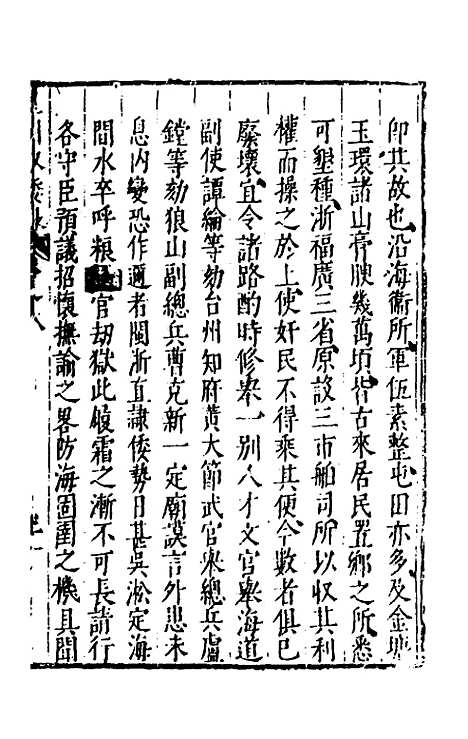 卽其故也沿海衞所軍伍素整屯田亦多及金塘
玉環諸山膏腴幾萬頃皆古來居民置鄉之所悉
可墾種浙福廣三省原設三市舶司所以收其利
權而操之於上使奸民不得乘其便今數者俱已
廢壞宜令諸路酌時修舉一別人才文官舉海道
副使譚綸等劾台州知府黃大節武官舉總兵盧
鏜等劾狼山副總兵曹克新一定廟謨言外患未
息內變恐作邇者閩浙直隸倭勢日甚吳淞定海
間水卒呼粮 官劫獄此履霜之漸不可長請行
各守臣預議招懷撫諭之畧防海固圉之機具聞